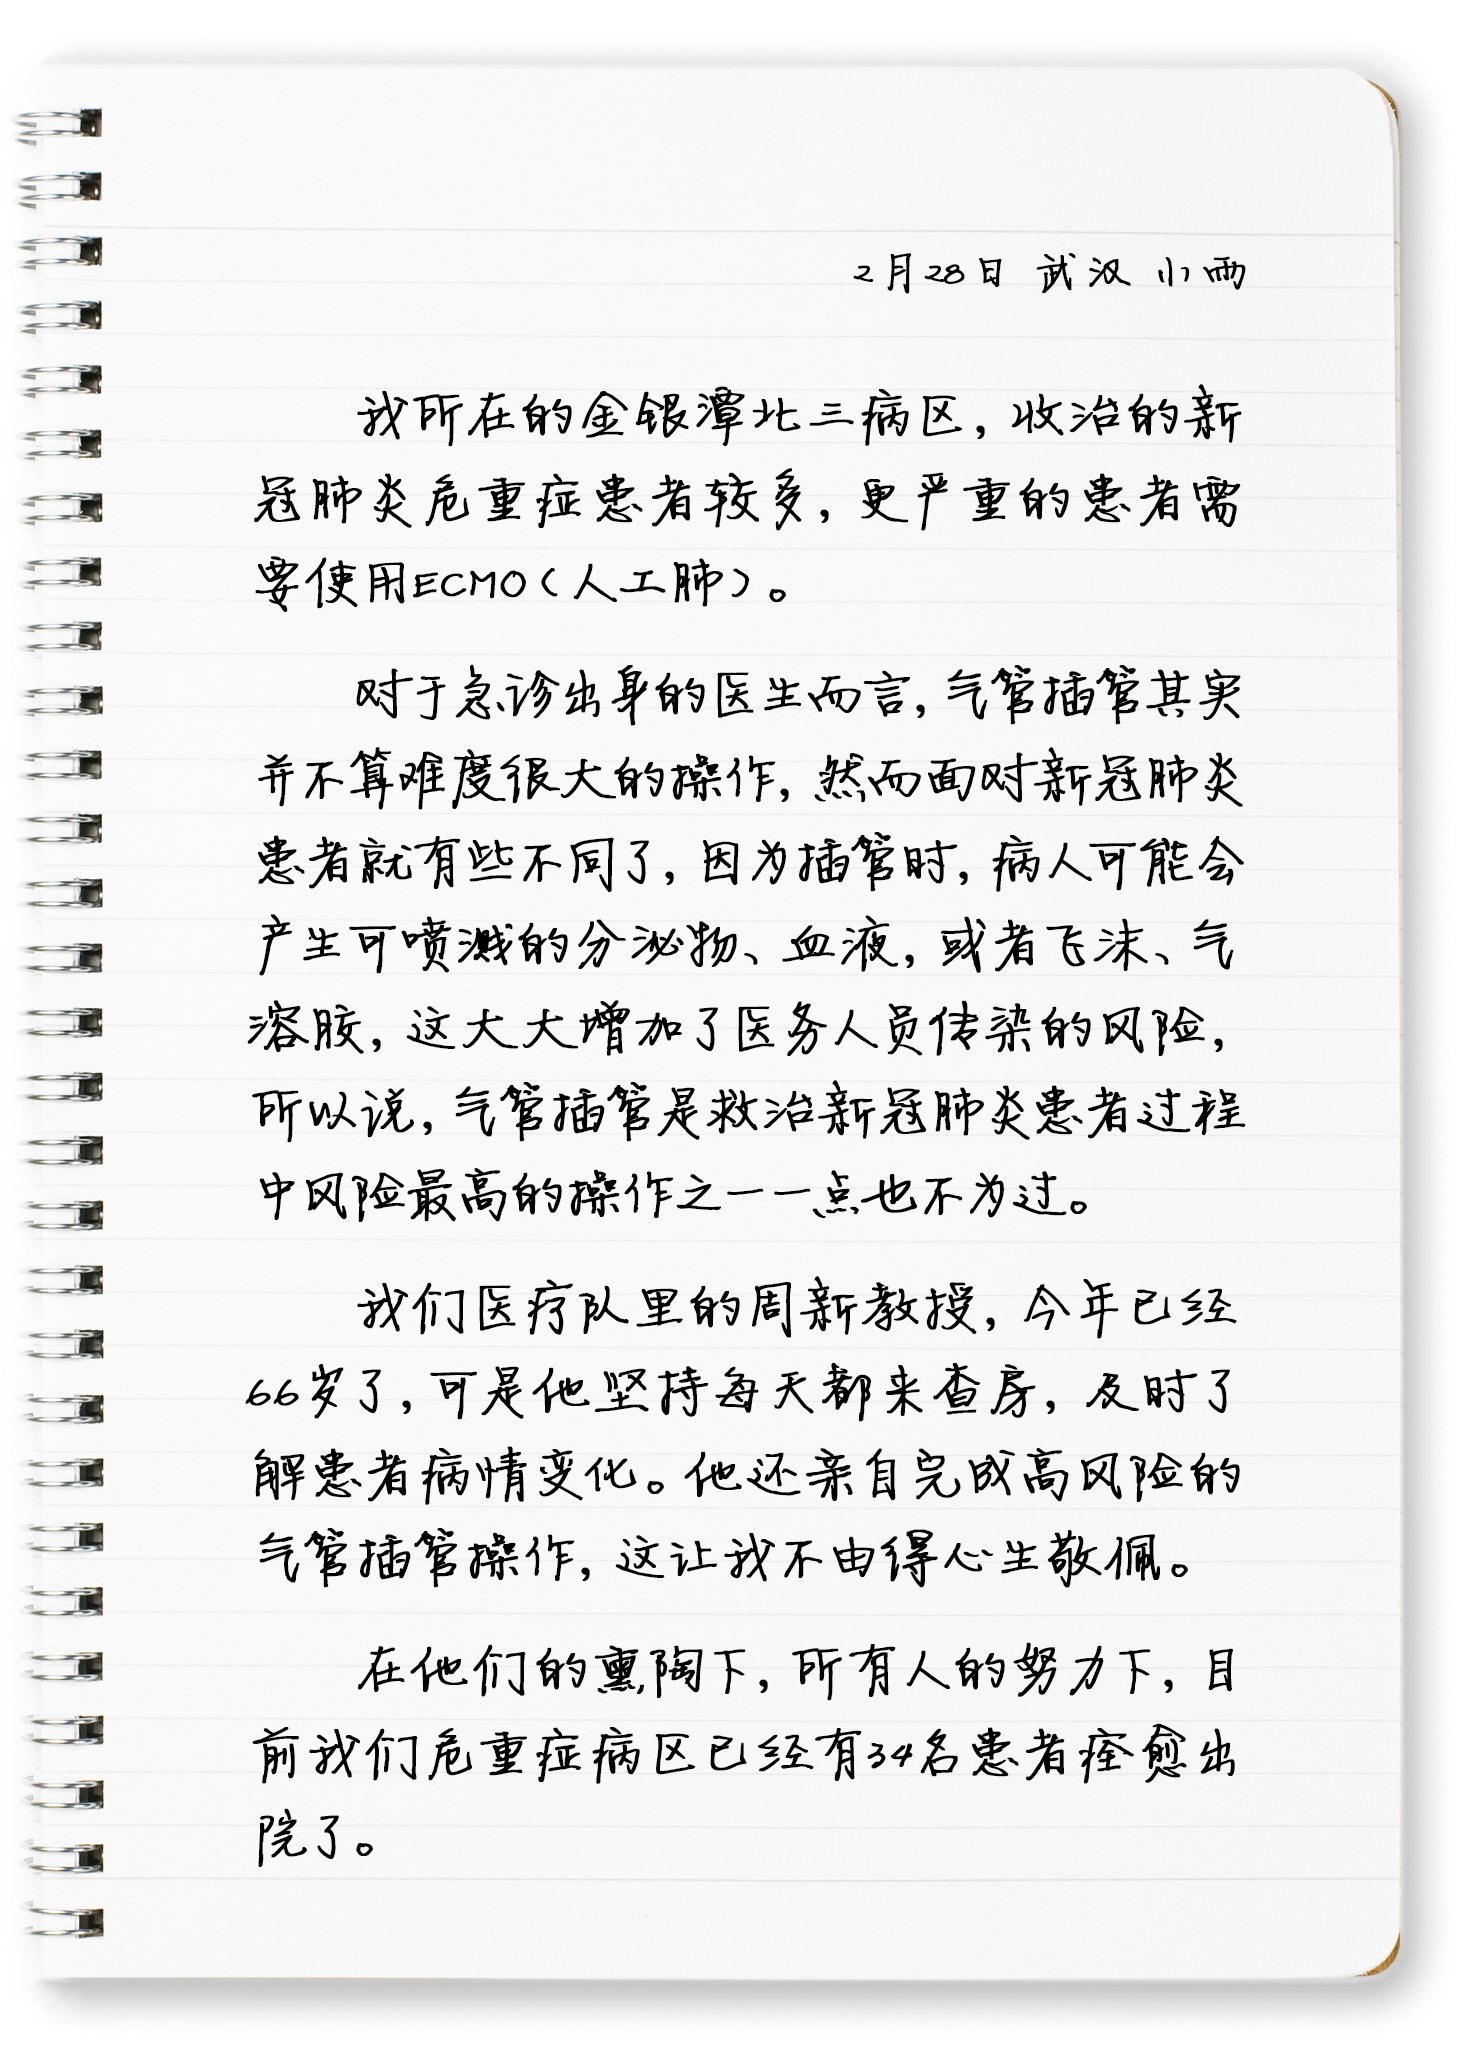 2月28日 武汉 小雨
我所在的金银潭北三病区，收治的新
冠肺炎危重症患者较多，更严重的患者需
要使用ECMO（人工肺）。
对于急诊出身的医生而言，气管插管其实
并不算难度很大的操作，然而面对新冠肺炎
患者就有些不同了，因为插管时，病人可能会
产生可喷溅的分泌物、血液，或者飞沫、气
溶胶，这大大增加了医务人员传染的风险，
所以说，气管插管是救治新冠肺炎患者过程
中风险最高的操作之一一点也不为过。
我们医疗队里的周新教授，今年已经
66岁了，可是他坚持每天都来查房，及时了
解患者病情变化。他还亲自完成高风险的
气管插管操作，这让我不由得心生敬佩。
在他们的熏陶下，所有人的努力下，目
前我们危重症病区已经有34名患者痊愈出
院了。